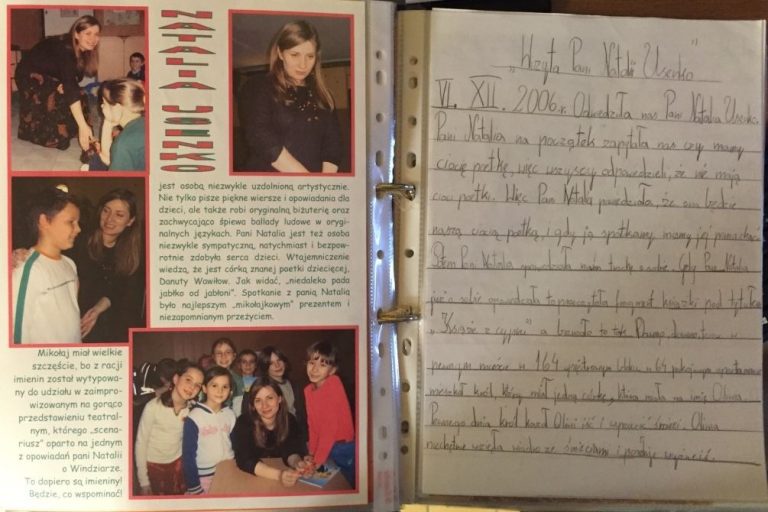 NATALIA USENKO
jest osobą niezwykle uzdolnioną artystycznie.
Nie tylko pisze piękne wiersze i opowiadania dla
dzieci, ale także robi oryginalną biżuterię oraz
zachwycająco śpiewa ballady ludowe w orygi-
nalnych językach. Pani Natalia jest też osobą
niezwykle sympatyczną, natychmiast i bezpow-
rotnie zdobyła serca dzieci. Wtajemniczenie
wiedzą, że jest córką znanej poetki dziecięcej,
Danuty Wawiłow. Jak widać, "niedaleko pada
jabłko od jabłoni". Spotkanie z panią Natalią
było najlepszym "mikołajkowym" prezentem i
niezapomnianym przeżyciem.
Mikołaj miał wielkie
szczęście, bo z racji
imienin został wytypowa-
ny do udziału w zaimpro-
wizowanym na gorąco
przedstawieniu teatral-
nym, którego "scena-
riusz" oparto na jednym
z opowiadań pani Natalii
o Windziarze.
To dopiero są imieniny!
Będzie, co wspominać!
"Wizyta Pani Natalii Usenko"
VI. XII. 2006r. Odwiedziła nas Pani Natalia Usenko.
Pani Natalia na początek zapytała nas czy mamy
ciocię poetkę, więc wszyscy odpowiedzieli, że nie mają
cioci poetki. Więc Pani Natalia powiedziała, że ona będzie
naszą ciocią poetką, i gdy ją spotkamy mamy jej
Potem Pani Natalia opowiedziała nam trochę o sobie. Gdy Pani Natalia
już o sobie opowiedziała to przeczytała fragment książki pod tytułem
a brzmiało to tak:
pewnym mieście w 164 piętrowym bloku w 64 pokojowym apartamencie
mieszkał król, który miał jedną córkę, która miała na imię Oliwia.
Pewnego dnia król kazał Oliwii iść i wyrzucić śmieci. Oliwia
niechętnie wzięła wiadro ze śmieciami i poszła wyrzucić.